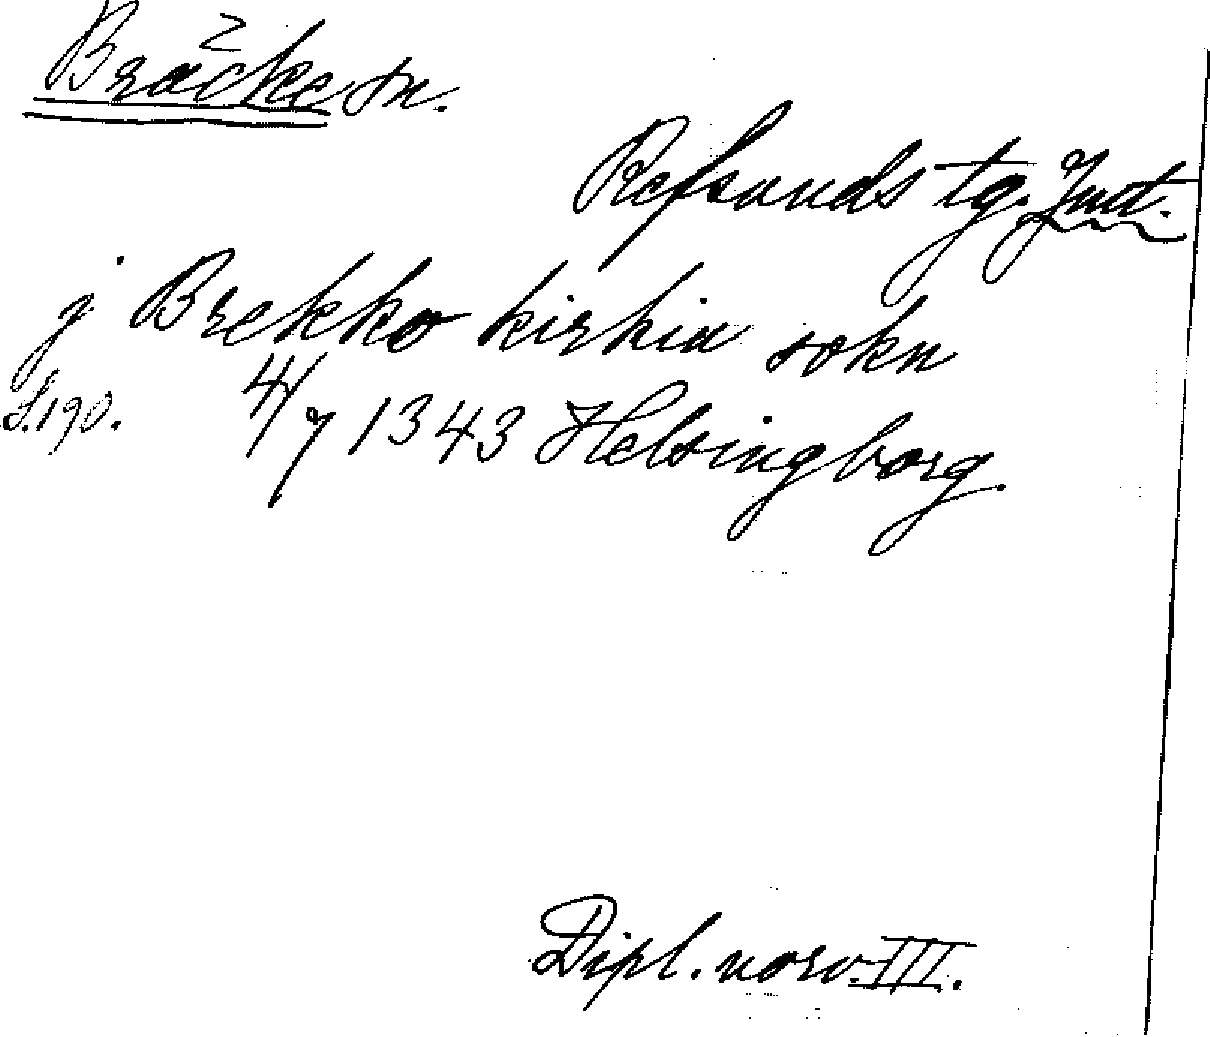 Bräcke sn.
Refsunds tg. Jmt.
j Brekko kirkiu sokn
S. 190. 4/7 1343 Helsingborg.
Dipl. norv. III.